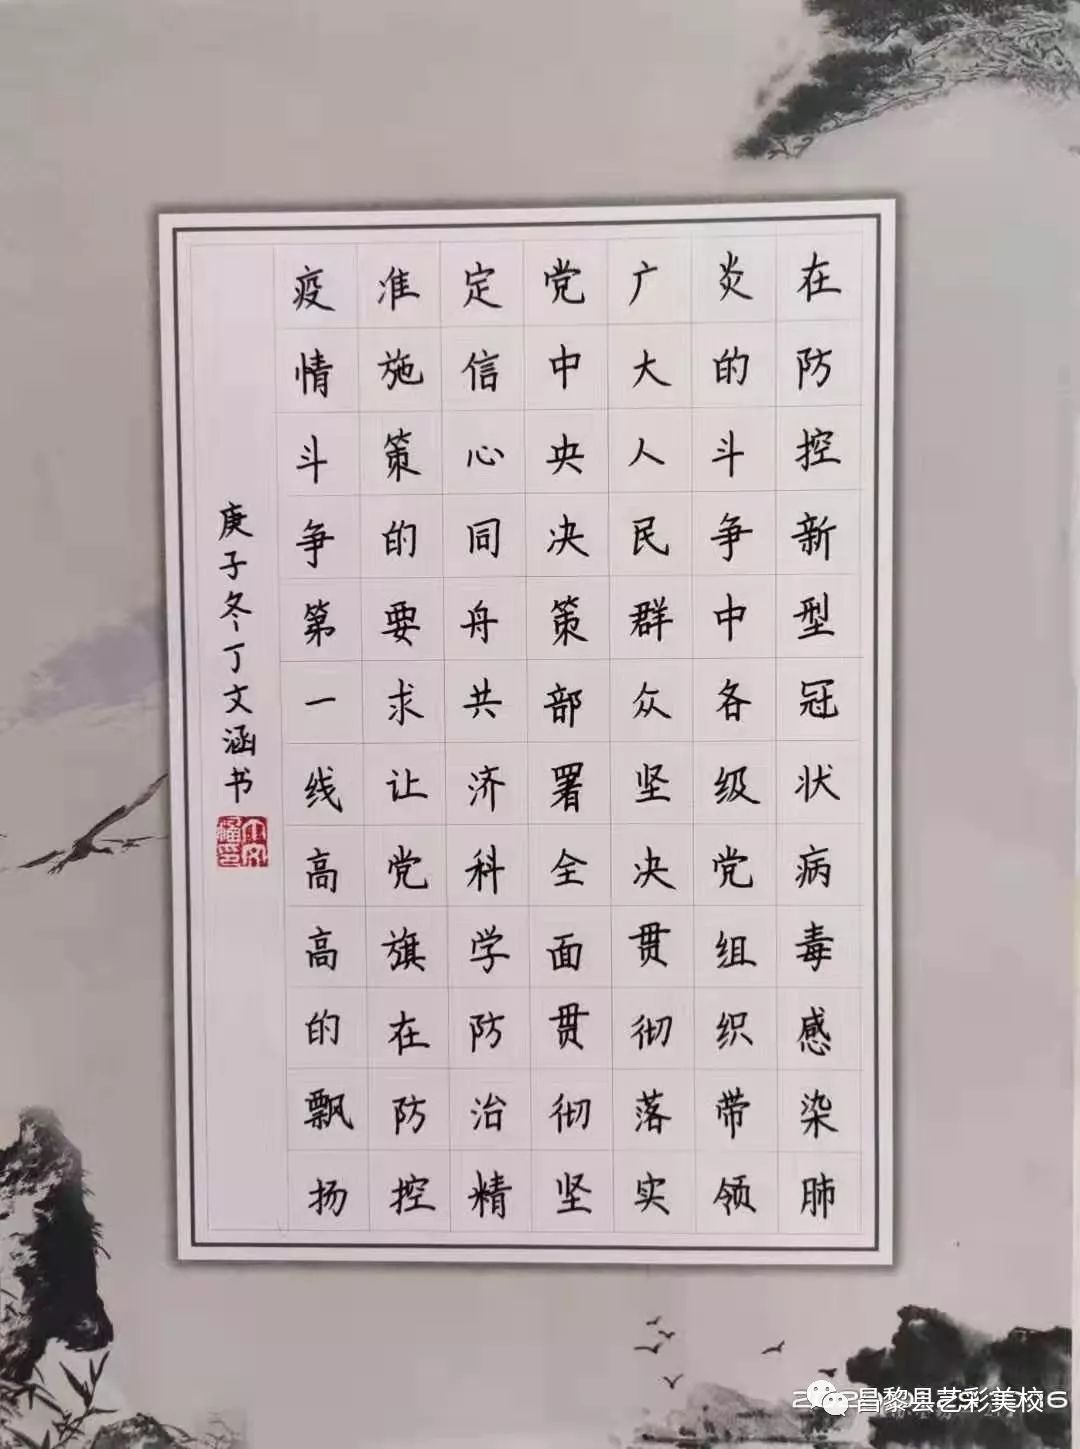 在防控新型冠状病毒感染肺
炎的斗争中各级党组织带领
广大人民群众坚决贯彻落实
党中央决策部署全面贯彻坚
定信心同舟共济科学防治精
准施策的要求让党旗在防控
疫情斗争第一线高高的飘扬
庚子冬丁文涵书
昌黎县艺彩美校